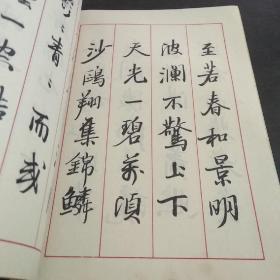 至若春和景明
波瀾不驚上下
天光一碧萬頃
沙鷗翔集錦鱗
而或